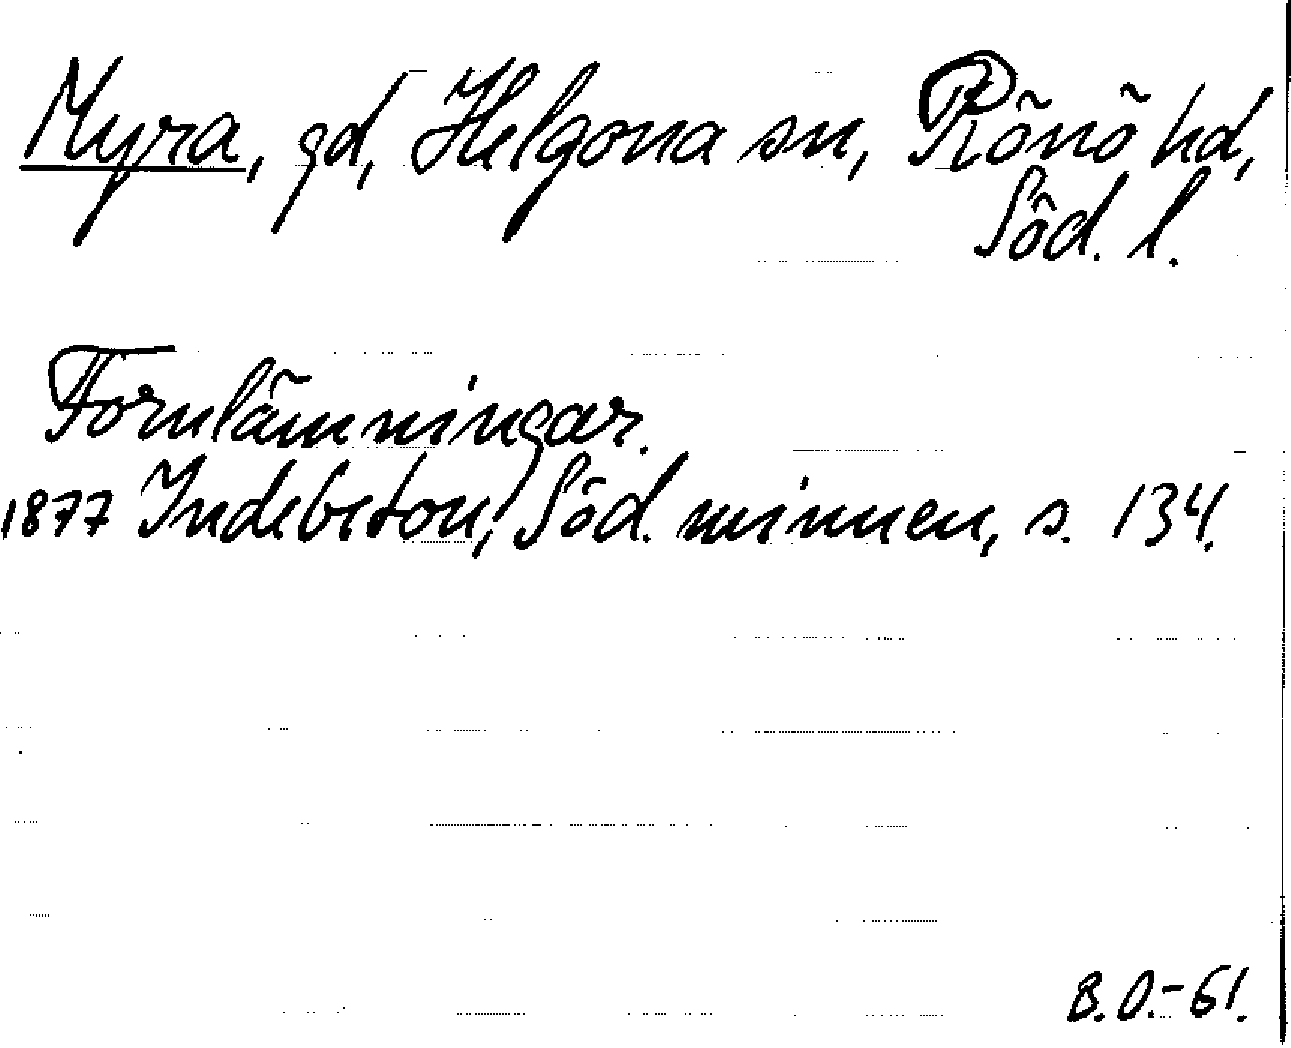 Myra, gd, Helgona sn, Rönö hd,
Söd. l.
Fornlämningar.
1877 Indebetou, Söd. minnen, s. 134.
B.O.-61.